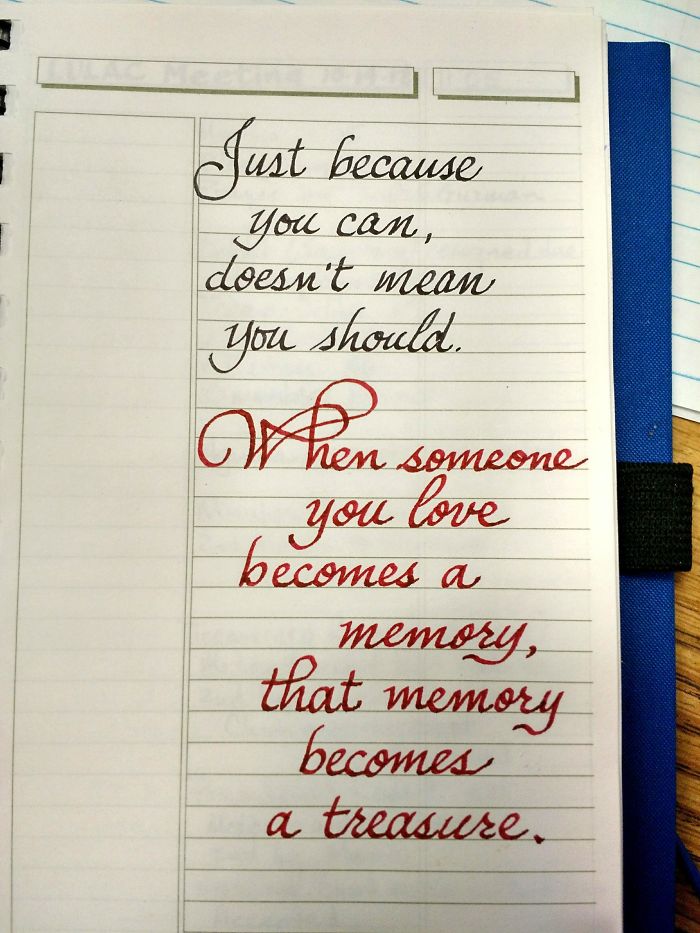 LULAC Meeting
Just because
you can,
doesn't mean
you should.
When someone
you love
becomes a
memory,
that memory
becomes
a treasure.